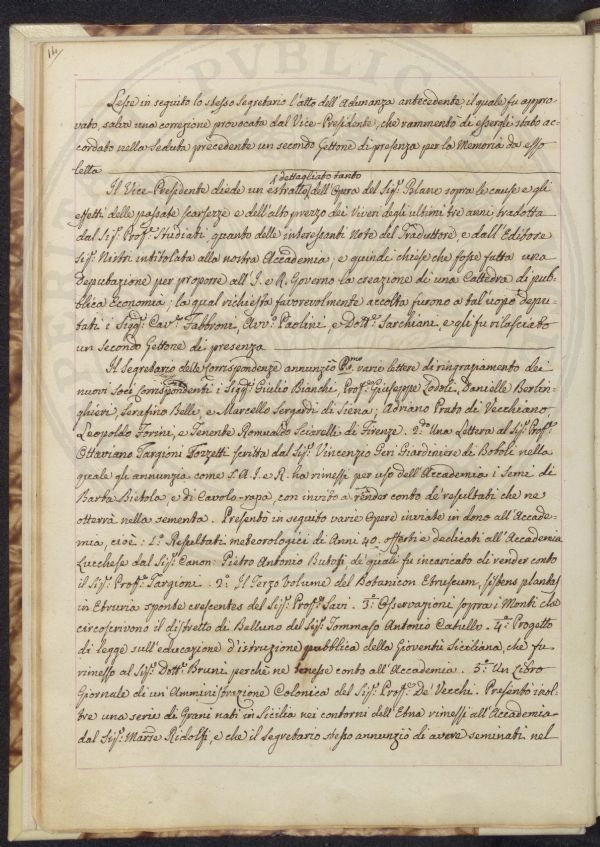 14
Lesse in seguito lo stesso Segretario l'atto dell'Adunanza antecedente il quale fu appro-
vato, salva una correzione provocata dal Vice-Presidente, che rammentò di essergli stato ac-
cordato nella seduta precedente un secondo Gettone di presenza per la Memoria da esso
letta
dettagliato tanto
Il Vice-Presidente diede un estratto dell'Opera del Sig.r Polane sopra le cause e gli
effetti delle passate scarsezze e dell'alto prezzo dei Viveri degli ultimi tre anni, tradotta
dal Sig.r Prof.re Studiati, quanto delle interessanti Note del Traduttore, e dall'Editore
Sig.r Nistri intitolata alla nostra Accademia, e quindi chiese che fosse fatta una
Deputazione per proporre all'I. e R. Governo la creazione di una Cattedra di pub-
blica Economia; la qual richiesta favorevolmente accolta furono a tal uopo depu-
tati i Sigg.ri Cav.r Fabbroni, Avv.o Paolini, e Dott.r Sarchiani, e gli fu rilasciato
un secondo Gettone di presenza
Il Segretario delle Corrispondenze annunziò P.mo varie lettere di ringraziamento dei
nuovi Soci Corrispondenti i Sigg.ri Giulio Bianchi, Prof.re Giuseppe Lodoli, Danielle Berlin-
ghieri, Serafino Belle, e Marcello Sergardi di Siena; Adriano Prato di Vecchiano,
Leopoldo Forini, e Tenente Romualdo Sciarelli di Firenze. 2.do Una Lettera al Sig.r Prof.re
Ottaviano Targioni Tozzetti scritta dal Sig.r Vincenzio Geri Giardiniere di Boboli nella
quale gli annunzia come S. A. I. e R. ha rimessi per uso dell'Accademia i Semi di
Barba Bietola, e di Cavolo-rapa, con invito a render conto de' resultati che ne
otterrà nella sementa. Presentò in seguito varie Opere inviate in dono all'Accade-
mia, cioè: 1.o Resultati meteorologici di Anni 40. offerti e dedicati all'Accademia
Lucchese dal Sig.r Canon.o Pietro Antonio Butori, de' quali fu incaricato di render conto
il Sig.r Prof.re Targioni. 2.o Il Terzo Volume del Botanicon Etruscum, sistens plantas
in Etruria sponte crescentes del Sig.r Prof.re Savi. 3.o Osservazioni sopra i Monti che
circoscrivono il distretto di Belluno del Sig.r Tommaso Antonio Catullo. 4.o Progetto
di legge sull'educazione d'istruzione pubblica della Gioventù Siciliana, che fu
rimesso al Sig.r Dott.r Bruni perchè ne tenesse conto all'Accademia. 5.o Un Libro
Giornale di un'Amministrazione Colonica del Sig.r Prof.re De' Vecchi. Presentò inol-
tre una serie di Grani nati in Sicilia nei contorni dell'Etna rimessi all'Accademia
dal Sig.r March.e Ridolfi, e che il Segretario stesso annunziò di avere seminati nel